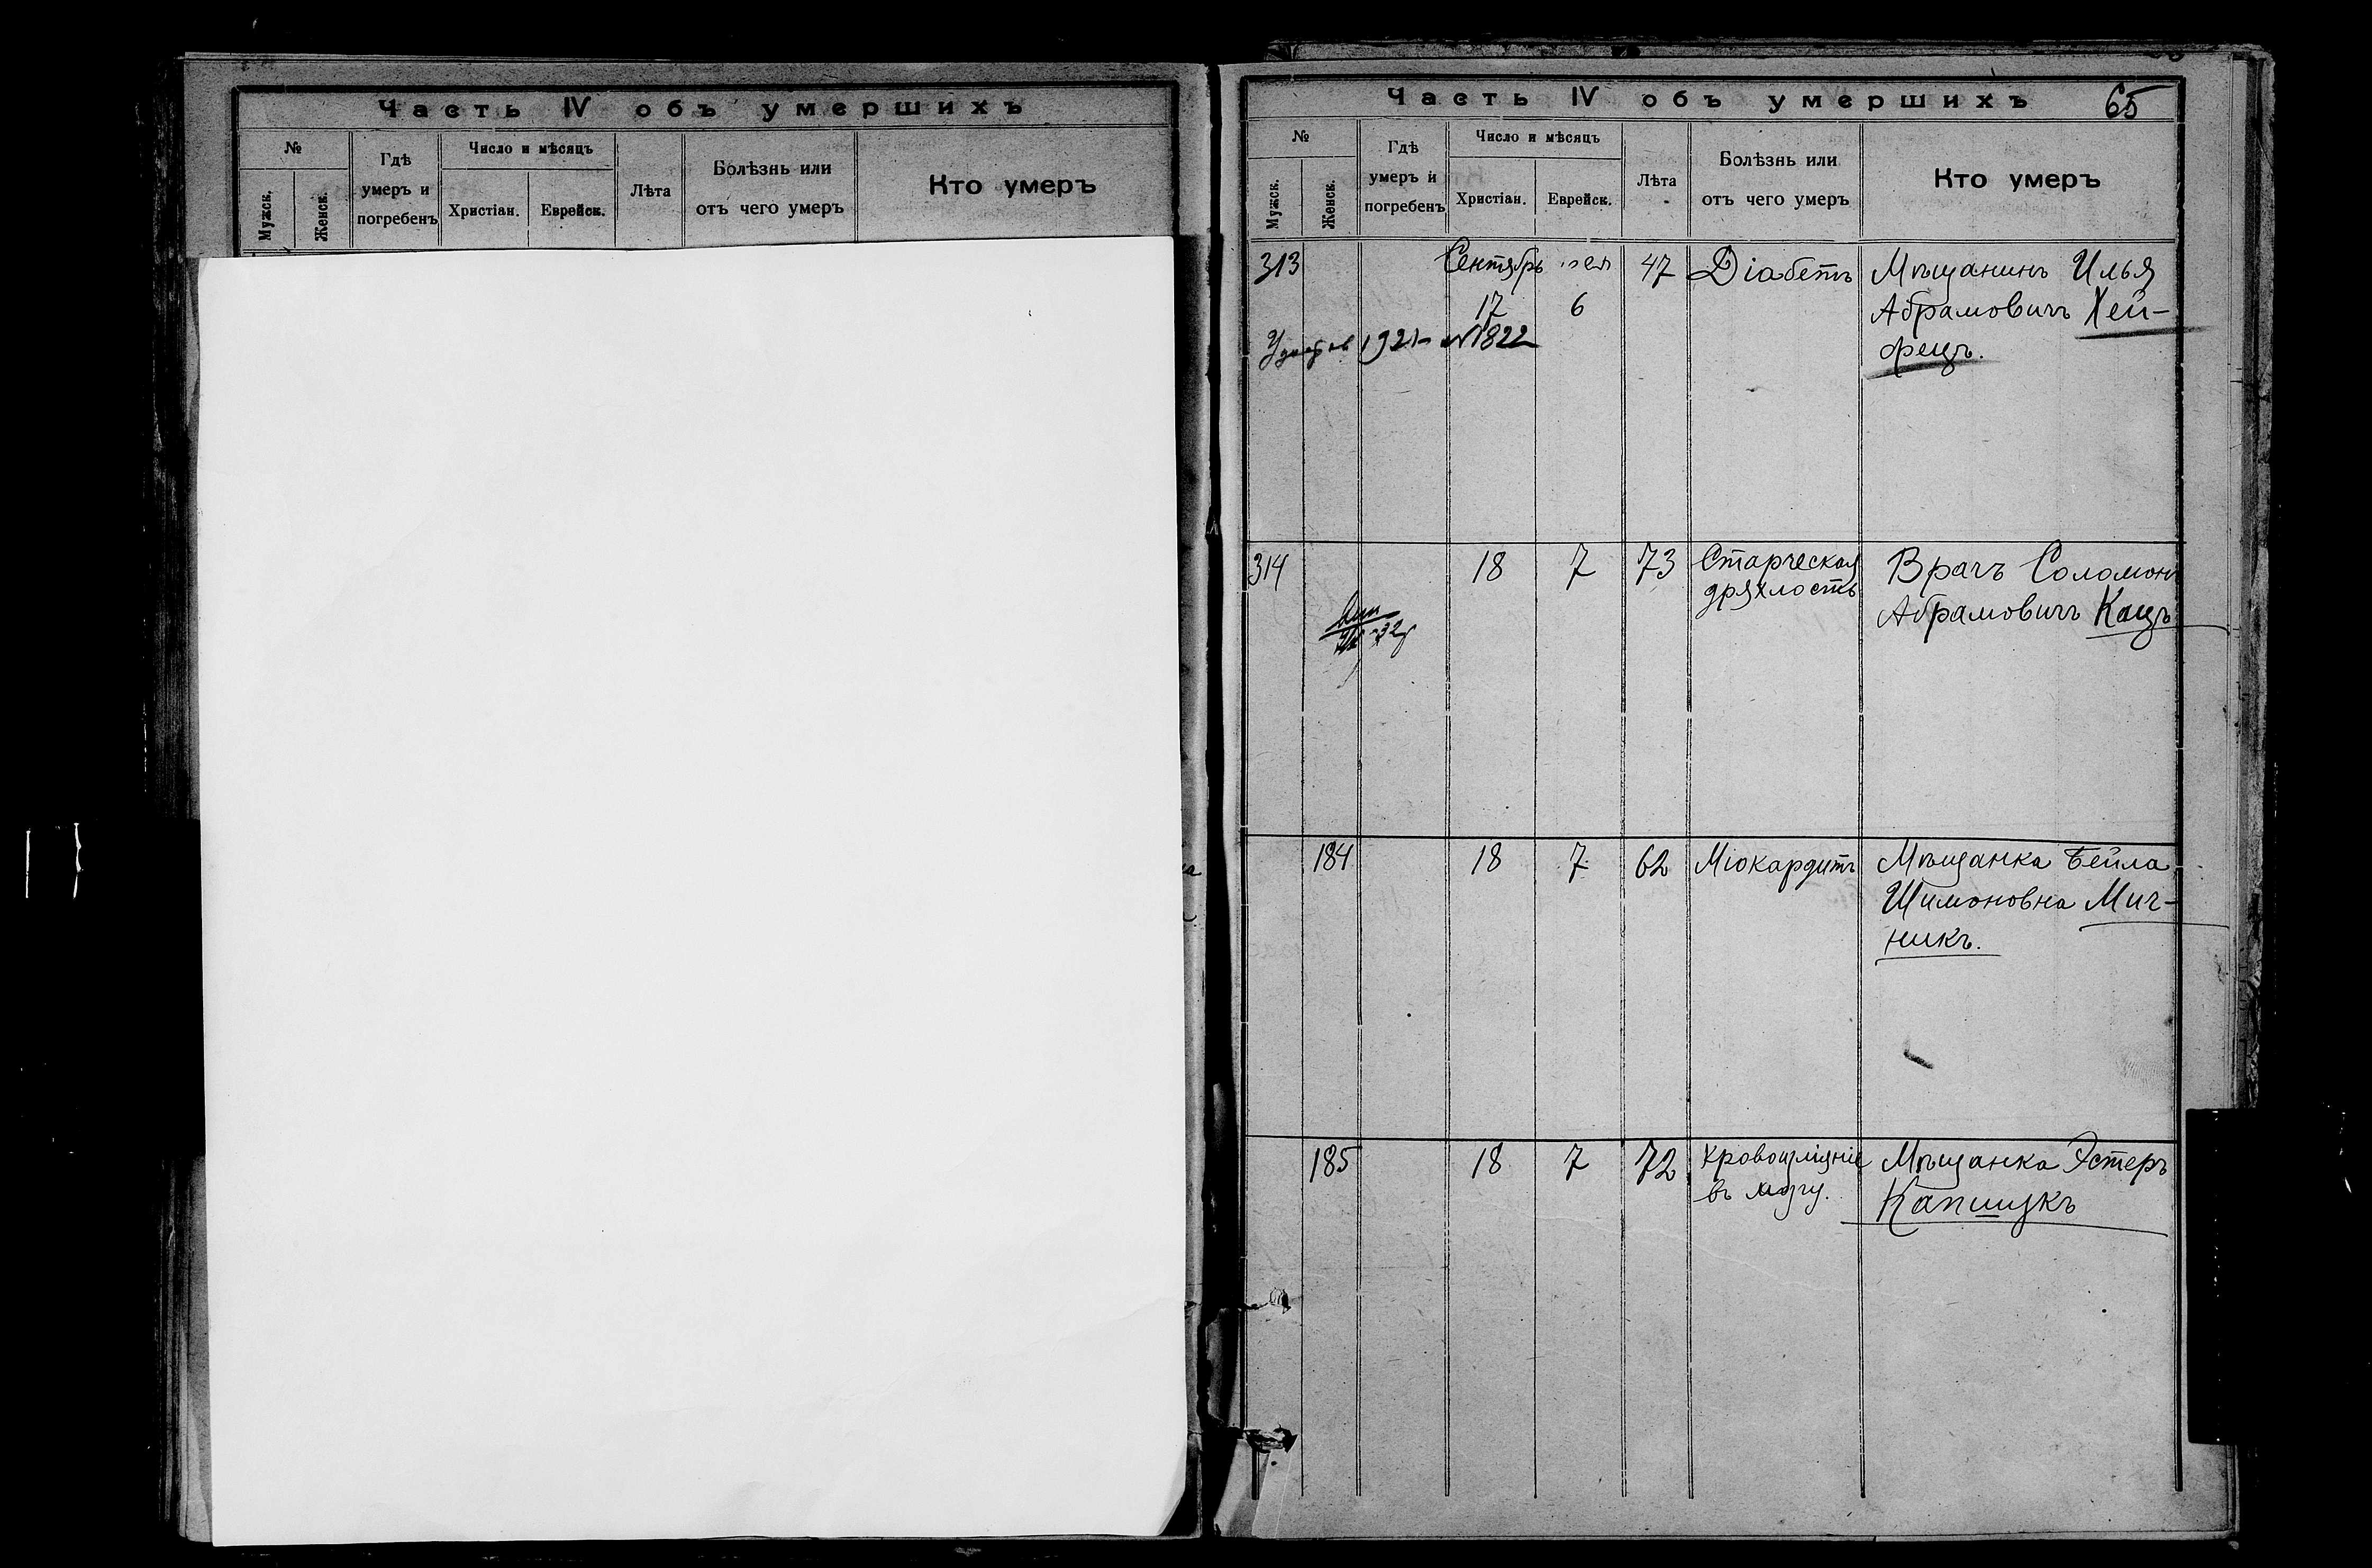 Часть IV объ умершихъ
№
Мужск.
Женск.
Гдѣ
умеръ и
погребенъ
Число и мѣсяцъ
Христіан.
Еврейск.
Лѣта
Болѣзнь или
отъ чего умеръ
Кто умеръ
Часть IV объ умершихъ
65
№
Мужск.
Женск.
Гдѣ
умеръ и
погребенъ
Число и мѣсяцъ
Христіан.
Еврейск.
Лѣта
Болѣзнь или
отъ чего умеръ
Кто умеръ
313
Сентябрь
17
6
47
Діабетъ
Мѣщанинъ Илья
Абрамовичъ Хей-
фецъ.
1921 N1822
314
18
7
73
Старческая
дряхлость
Врачъ Соломонъ
Абрамовичъ Кацъ
184
18
7
62
Міокардитъ
Мѣщанка Бейла
Шимоновна Мич-
никъ.
185
18
7
72
Кровоизліяніе
въ мозгу.
Мѣщанка Эстеръ
Капшукъ